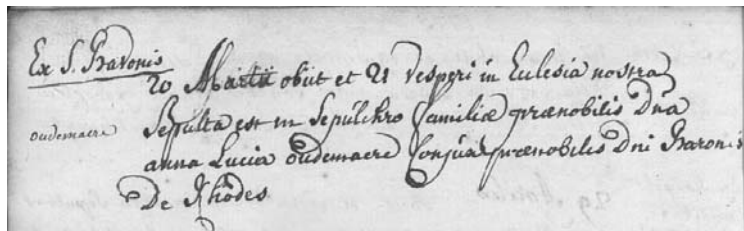 Ex S. Bavonis
20 Martii obiit et 21 vesperi in Eclesia nostra
oudemaere
Sepulta est in Sepulchro familiæ prænobilis Dna
anna Lucia oudemaere Conjux prænobilis Dni Baronis
De Rhodes